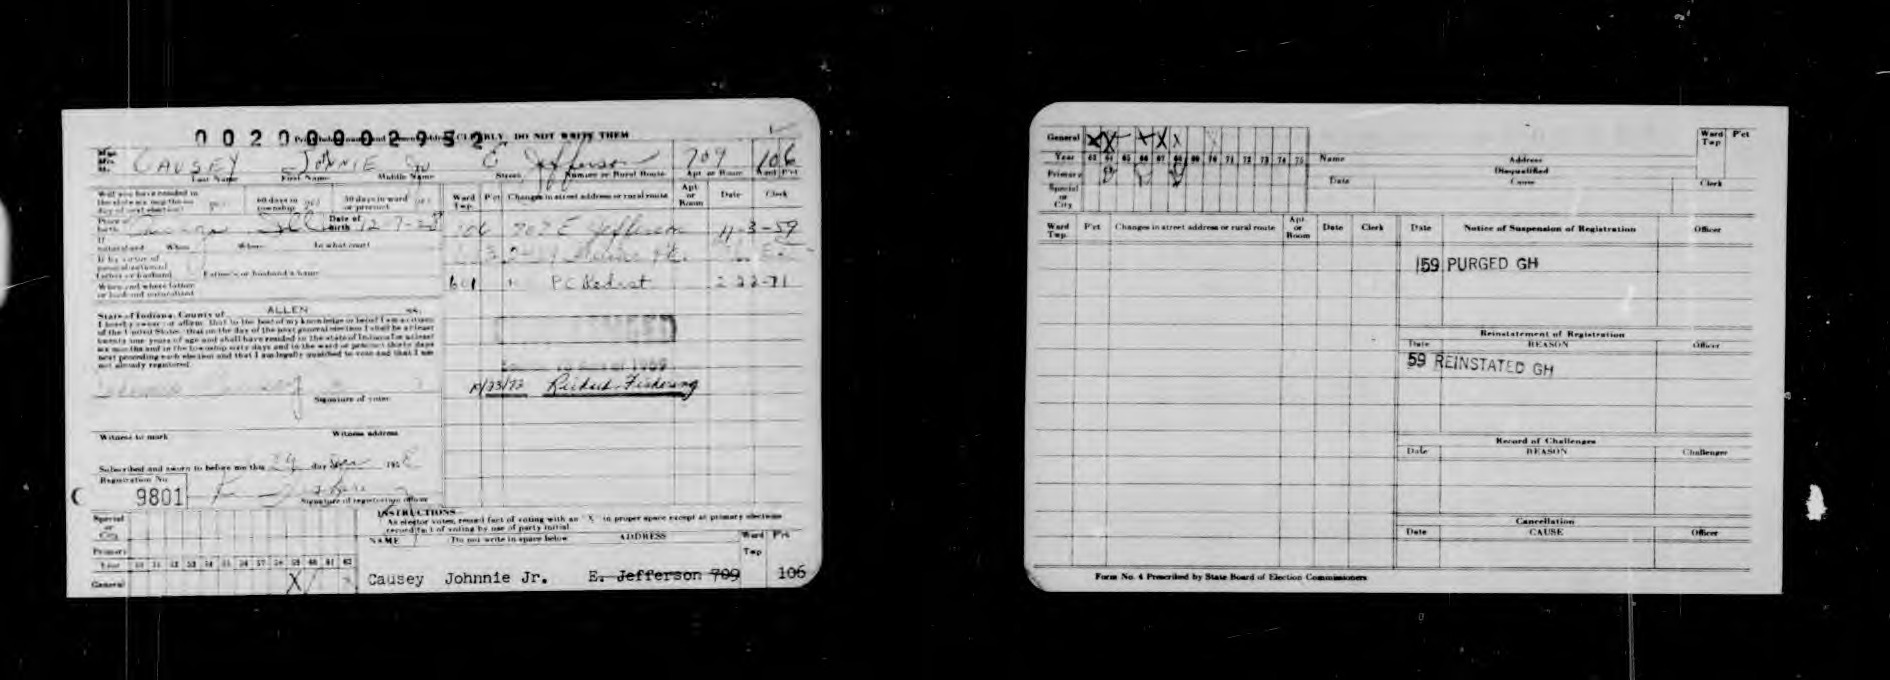 00200002952
CLEARLY, DO NOT WRITE THEM
CAUSEY JOHNNIE JR E Jefferson 709 106
Last Name First Name Middle Name Street Number or Rural Route Apt or Room Ward P'ct
Will you have resided in the state six months day of next election? yes 60 days in township yes 30 days in ward or precinct yes
Ward Twp. P'ct Changes in street address or rural route Apt or Room Date Clerk
Place of birth Chicago Ill Date of birth 12-7-28
106 802 E Jefferson 11-3-59
If naturalized When Where In what court
If by virtue of naturalization of father or husband Father's or husband's name
When and where father or husband naturalized
601 P C Redist. 2-22-71
State of Indiana, County of ALLEN SS.
I hereby swear or affirm that to the best of my knowledge or belief I am a citizen
of the United States; that on the day of the next general election I shall be at least
twenty-one years of age and shall have resided in the state of Indiana for at least
six months and in the township sixty days and in the ward or precinct thirty days
next preceding such election and that I am legally qualified to vote and that I am
not already registered.
10/23/72 Richard Fishering
Signature of voter
Witness to mark Witness address
Subscribed and sworn to before me this 29 day 1958
Registration No.
9801
Signature of registration officer
INSTRUCTIONS
As elector votes, record fact of voting with an "X" in proper space except at primary elections
record fact of voting by use of party initial.
NAME (Do not write in space below) ADDRESS Ward Twp P'ct
Special or City
Primary
Year 50 51 52 53 54 55 56 57 58 59 60 61 62
General X
Causey Johnnie Jr. E. Jefferson 709 106
General X X X X X
Year 63 64 65 66 67 68 69 70 71 72 73 74 75
Primary
Special or City
Name Address
Disqualified
Date Cause Clerk
Ward Twp P'ct
Ward Twp. P'ct Changes in street address or rural route Apt or Room Date Clerk
Date Notice of Suspension of Registration Officer
159 PURGED GH
Reinstatement of Registration
Date REASON Officer
59 REINSTATED GH
Record of Challenges
Date REASON Challenger
Cancellation
Date CAUSE Officer
Form No. 4 Prescribed by State Board of Election Commissioners